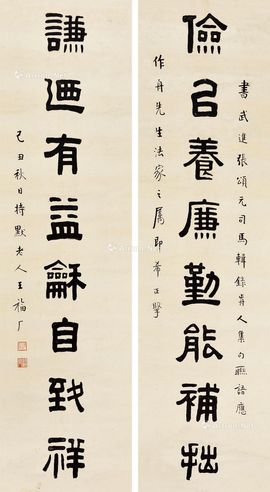 儉㠯養廉勤能補拙
書武進張頌元司馬輯錄昔人集句聯語應
作舟先生法家之屬即希正擘
謙迺有益龢自致祥
己丑秋日持默老人王福厂